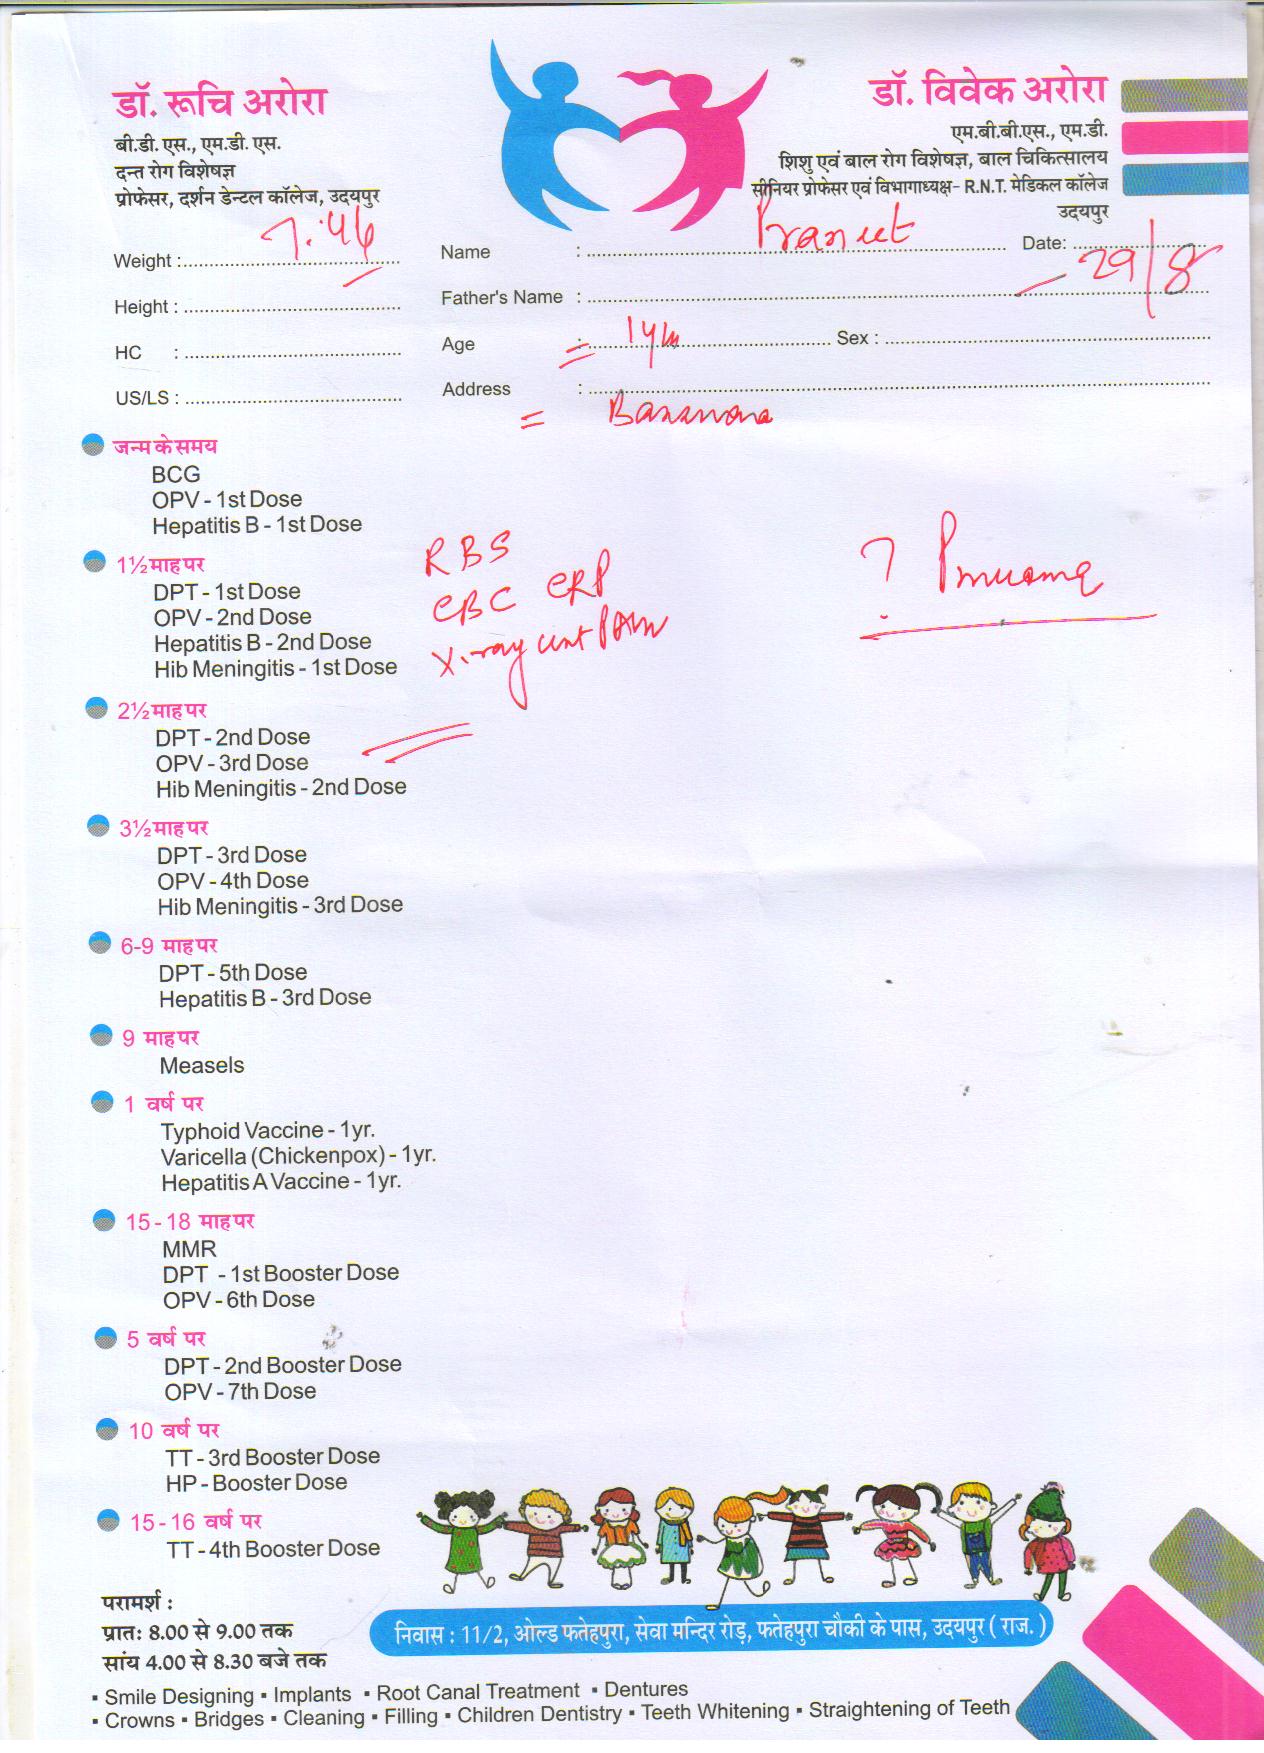 डॉ. रूचि अरोरा
बी.डी. एस., एम.डी. एस.
दन्त रोग विशेषज्ञ
प्रोफेसर, दर्शन डेन्टल कॉलेज, उदयपुर
डॉ. विवेक अरोरा
एम.बी.बी.एस., एम.डी.
शिशु एवं बाल रोग विशेषज्ञ, बाल चिकित्सालय
सीनियर प्रोफेसर एवं विभागाध्यक्ष- R.N.T. मेडिकल कॉलेज
उदयपुर
Weight : 7.46
Name : Praneet Date: 29/8
Height :
Father's Name :
HC :
Age : 1y
Sex :
US/LS :
Address :
जन्म के समय
BCG
OPV - 1st Dose
Hepatitis B - 1st Dose
1½ माह पर
DPT - 1st Dose
OPV - 2nd Dose
Hepatitis B - 2nd Dose
Hib Meningitis - 1st Dose
RBS
CBC CRP
X-ray
?
2½ माह पर
DPT - 2nd Dose
OPV - 3rd Dose
Hib Meningitis - 2nd Dose
3½ माह पर
DPT - 3rd Dose
OPV - 4th Dose
Hib Meningitis - 3rd Dose
6-9 माह पर
DPT - 5th Dose
Hepatitis B - 3rd Dose
9 माह पर
Measels
1 वर्ष पर
Typhoid Vaccine - 1yr.
Varicella (Chickenpox) - 1yr.
Hepatitis A Vaccine - 1yr.
15 - 18 माह पर
MMR
DPT - 1st Booster Dose
OPV - 6th Dose
5 वर्ष पर
DPT - 2nd Booster Dose
OPV - 7th Dose
10 वर्ष पर
TT - 3rd Booster Dose
HP - Booster Dose
15 - 16 वर्ष पर
TT - 4th Booster Dose
परामर्श :
प्रातः 8.00 से 9.00 तक
सांय 4.00 से 8.30 बजे तक
निवास : 11/2, ओल्ड फतेहपुरा, सेवा मन्दिर रोड़, फतेहपुरा चौकी के पास, उदयपुर ( राज. )
▪ Smile Designing ▪ Implants ▪ Root Canal Treatment ▪ Dentures
▪ Crowns ▪ Bridges ▪ Cleaning ▪ Filling ▪ Children Dentistry ▪ Teeth Whitening ▪ Straightening of Teeth